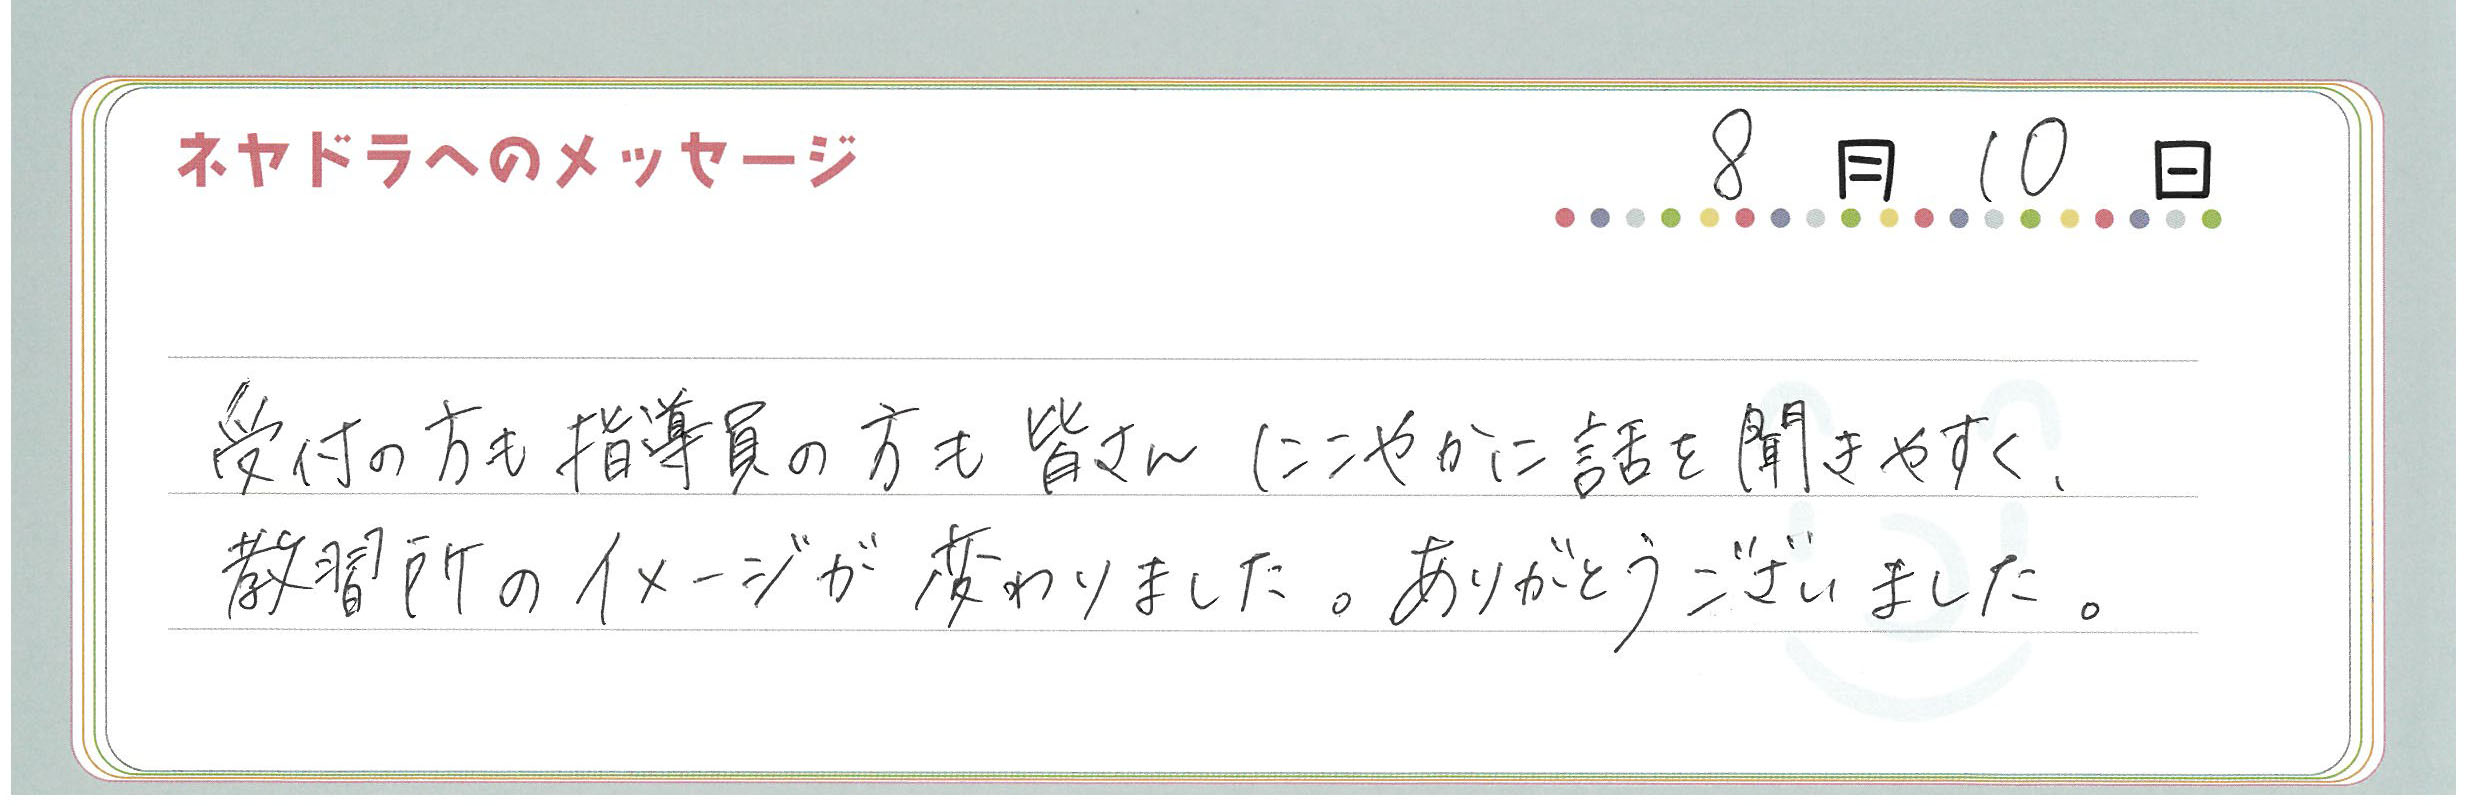 ネヤドラへのメッセージ
8月10日
受付の方も指導員の方も皆さんにこやかに話を聞きやすく、
教習所のイメージが変わりました。ありがとうございました。